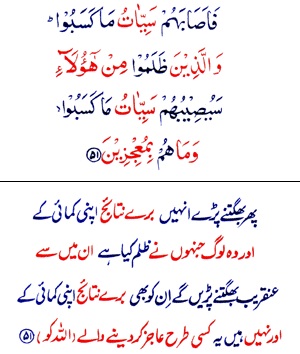 فَاَصَابَهُمْ سَيِّاٰتُ مَا كَسَبُوْا ؕ
وَالَّذِيْنَ ظَلَمُوْا مِنْ هٰٓؤُلَآءِ
سَيُصِيْبُهُمْ سَيِّاٰتُ مَا كَسَبُوْا ۙ
وَمَا هُمْ بِمُعْجِزِيْنَ ﴿۵۱﴾
پھر بھگتنے پڑے انہیں برے نتائج اپنی کمائی کے
اور وہ لوگ جنہوں نے ظلم کیا ہے ان میں سے
عنقریب بھگتنے پڑیں گے اِن کو بھی برے نتائج اپنی کمائی کے
اور نہیں ہیں یہ کسی طرح عاجز کر دینے والے (اللہ کو) ﴿۵۱﴾